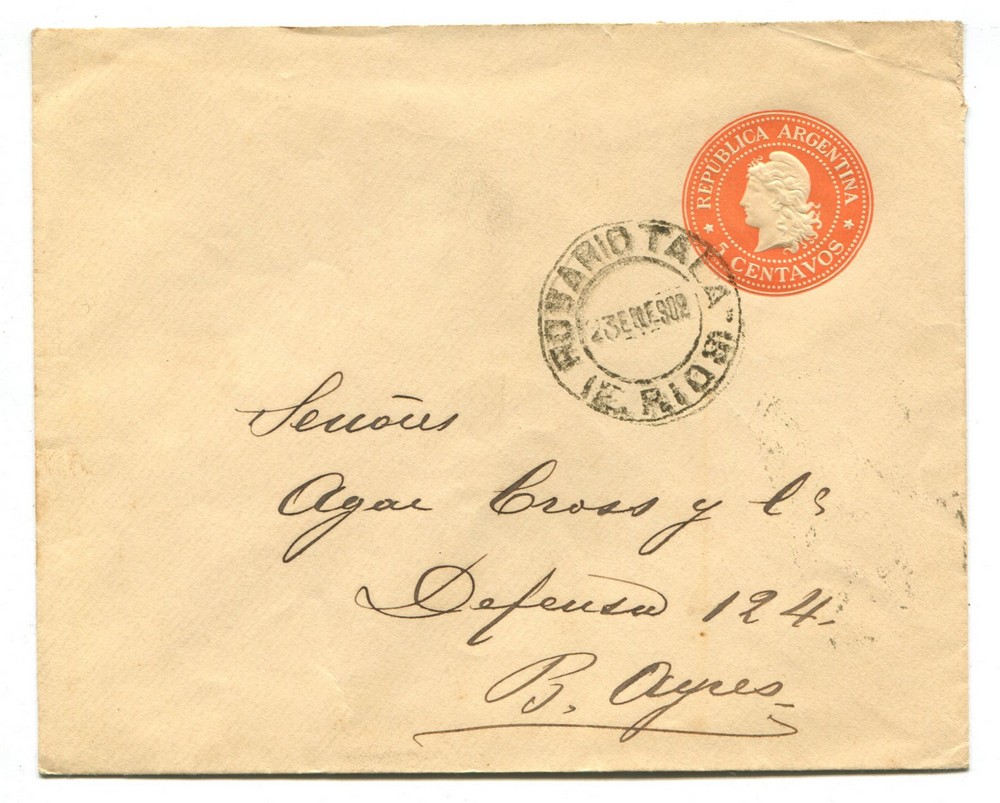 REPUBLICA ARGENTINA
5 CENTAVOS
ROSARIO TALA
(E. RIOS)
23 ENE 902
Señores
Agar Cross y Cª
Defensa 124.
B. Ayres